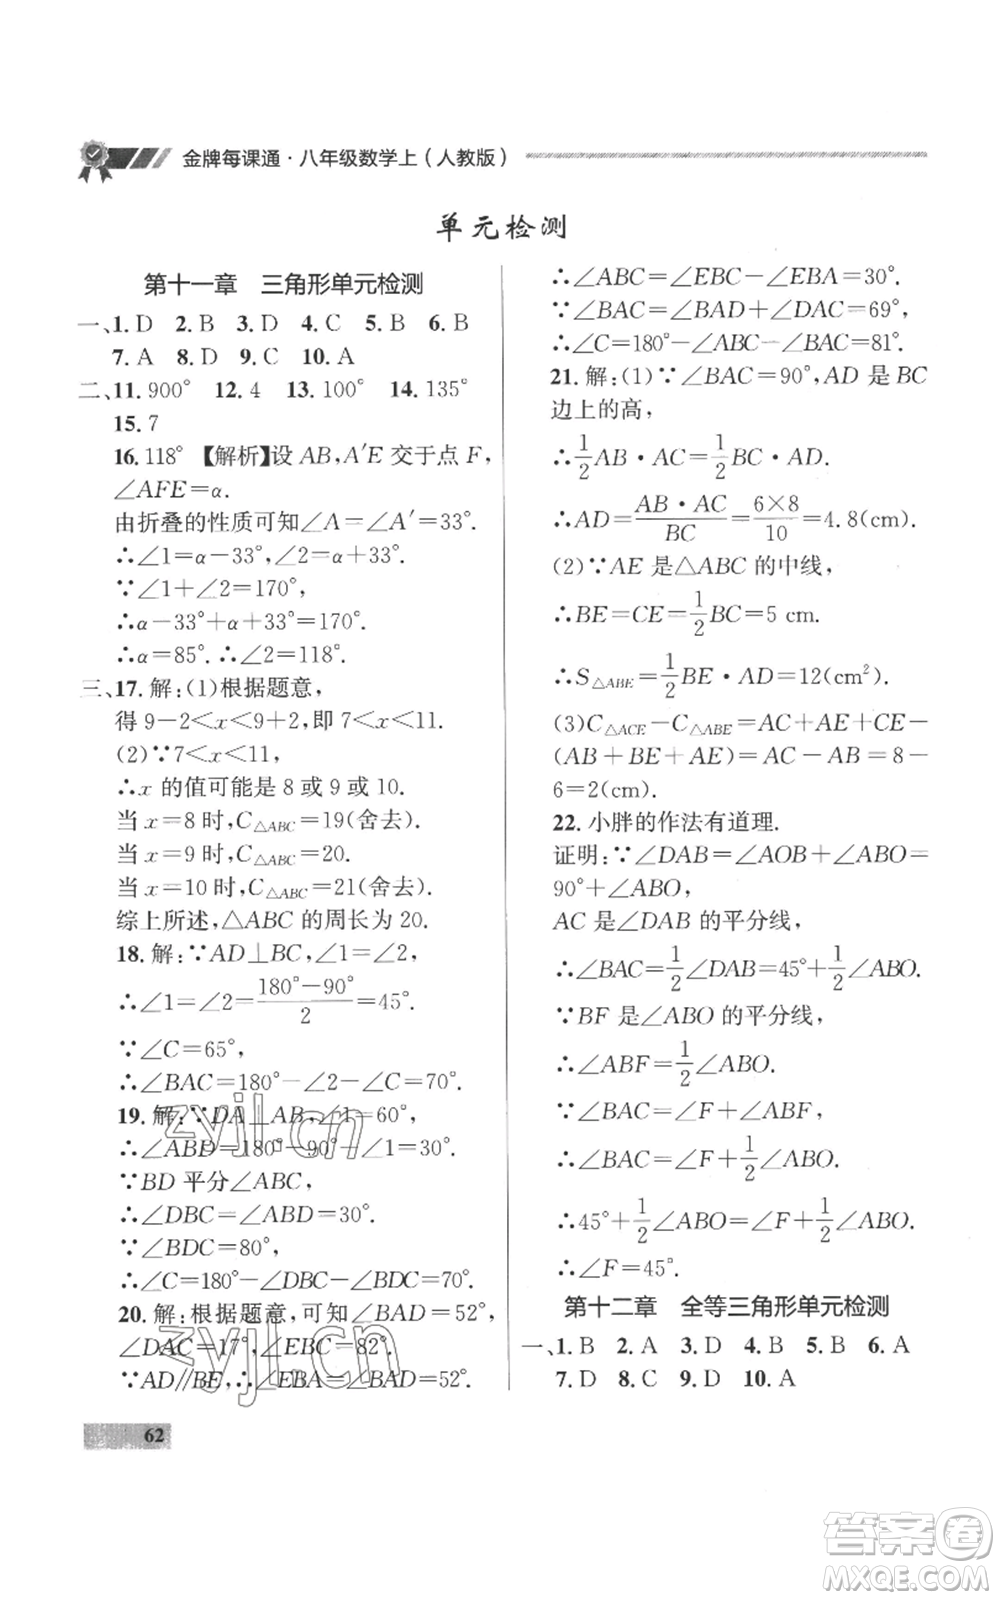 金牌每课通·八年级数学上(人教版)
单元检测
第十一章 三角形单元检测
一、1. D 2. B 3. D 4. C 5. B 6. B
7. A 8. D 9. C 10. A
二、11. 900° 12. 4 13. 100° 14. 135°
15. 7
16. 118° 【解析】设 AB, A′E 交于点 F,
∠AFE=α.
由折叠的性质可知∠A=∠A′=33°.
∴∠1=α-33°, ∠2=α+33°.
∵∠1+∠2=170°,
∴α-33°+α+33°=170°.
∴α=85°. ∴∠2=118°.
三、17. 解:(1)根据题意,
得 9-2<x<9+2,即 7<x<11.
(2)∵7<x<11,
∴x 的值可能是 8 或 9 或 10.
当 x=8 时,C△ABC=19(舍去).
当 x=9 时,C△ABC=20.
当 x=10 时,C△ABC=21(舍去).
综上所述,△ABC 的周长为 20.
18. 解:∵AD⊥BC,∠1=∠2,
∴∠1=∠2=(180°-90°)/2=45°.
∵∠C=65°,
∴∠BAC=180°-∠2-∠C=70°.
19. 解:∵DA⊥AB,∠1=60°,
∴∠ABD=180°-90°-∠1=30°.
∵BD 平分∠ABC,
∴∠DBC=∠ABD=30°.
∵∠BDC=80°,
∴∠C=180°-∠DBC-∠BDC=70°.
20. 解:根据题意,可知∠BAD=52°,
∠DAC=17°,∠EBC=82°.
∵AD∥BE,∴∠EBA=∠BAD=52°.
∴∠ABC=∠EBC-∠EBA=30°.
∵∠BAC=∠BAD+∠DAC=69°,
∴∠C=180°-∠ABC-∠BAC=81°.
21. 解:(1)∵∠BAC=90°,AD 是 BC
边上的高,
∴1/2 AB·AC=1/2 BC·AD.
∴AD=(AB·AC)/BC=(6×8)/10=4.8(cm).
(2)∵AE 是△ABC 的中线,
∴BE=CE=1/2 BC=5 cm.
∴S△ABE=1/2 BE·AD=12(cm²).
(3)C△ACE-C△ABE=AC+AE+CE-
(AB+BE+AE)=AC-AB=8-
6=2(cm).
22. 小胖的作法有道理.
证明:∵∠DAB=∠AOB+∠ABO=
90°+∠ABO,
AC 是∠DAB 的平分线,
∴∠BAC=1/2∠DAB=45°+1/2∠ABO.
∵BF 是∠ABO 的平分线,
∴∠ABF=1/2∠ABO.
∵∠BAC=∠F+∠ABF,
∴∠BAC=∠F+1/2∠ABO.
∴45°+1/2∠ABO=∠F+1/2∠ABO.
∴∠F=45°.
第十二章 全等三角形单元检测
一、1. B 2. A 3. D 4. B 5. B 6. A
7. D 8. C 9. D 10. A
62
zyjl.cn
zyjl.cn
答案圈
MXQE.COM